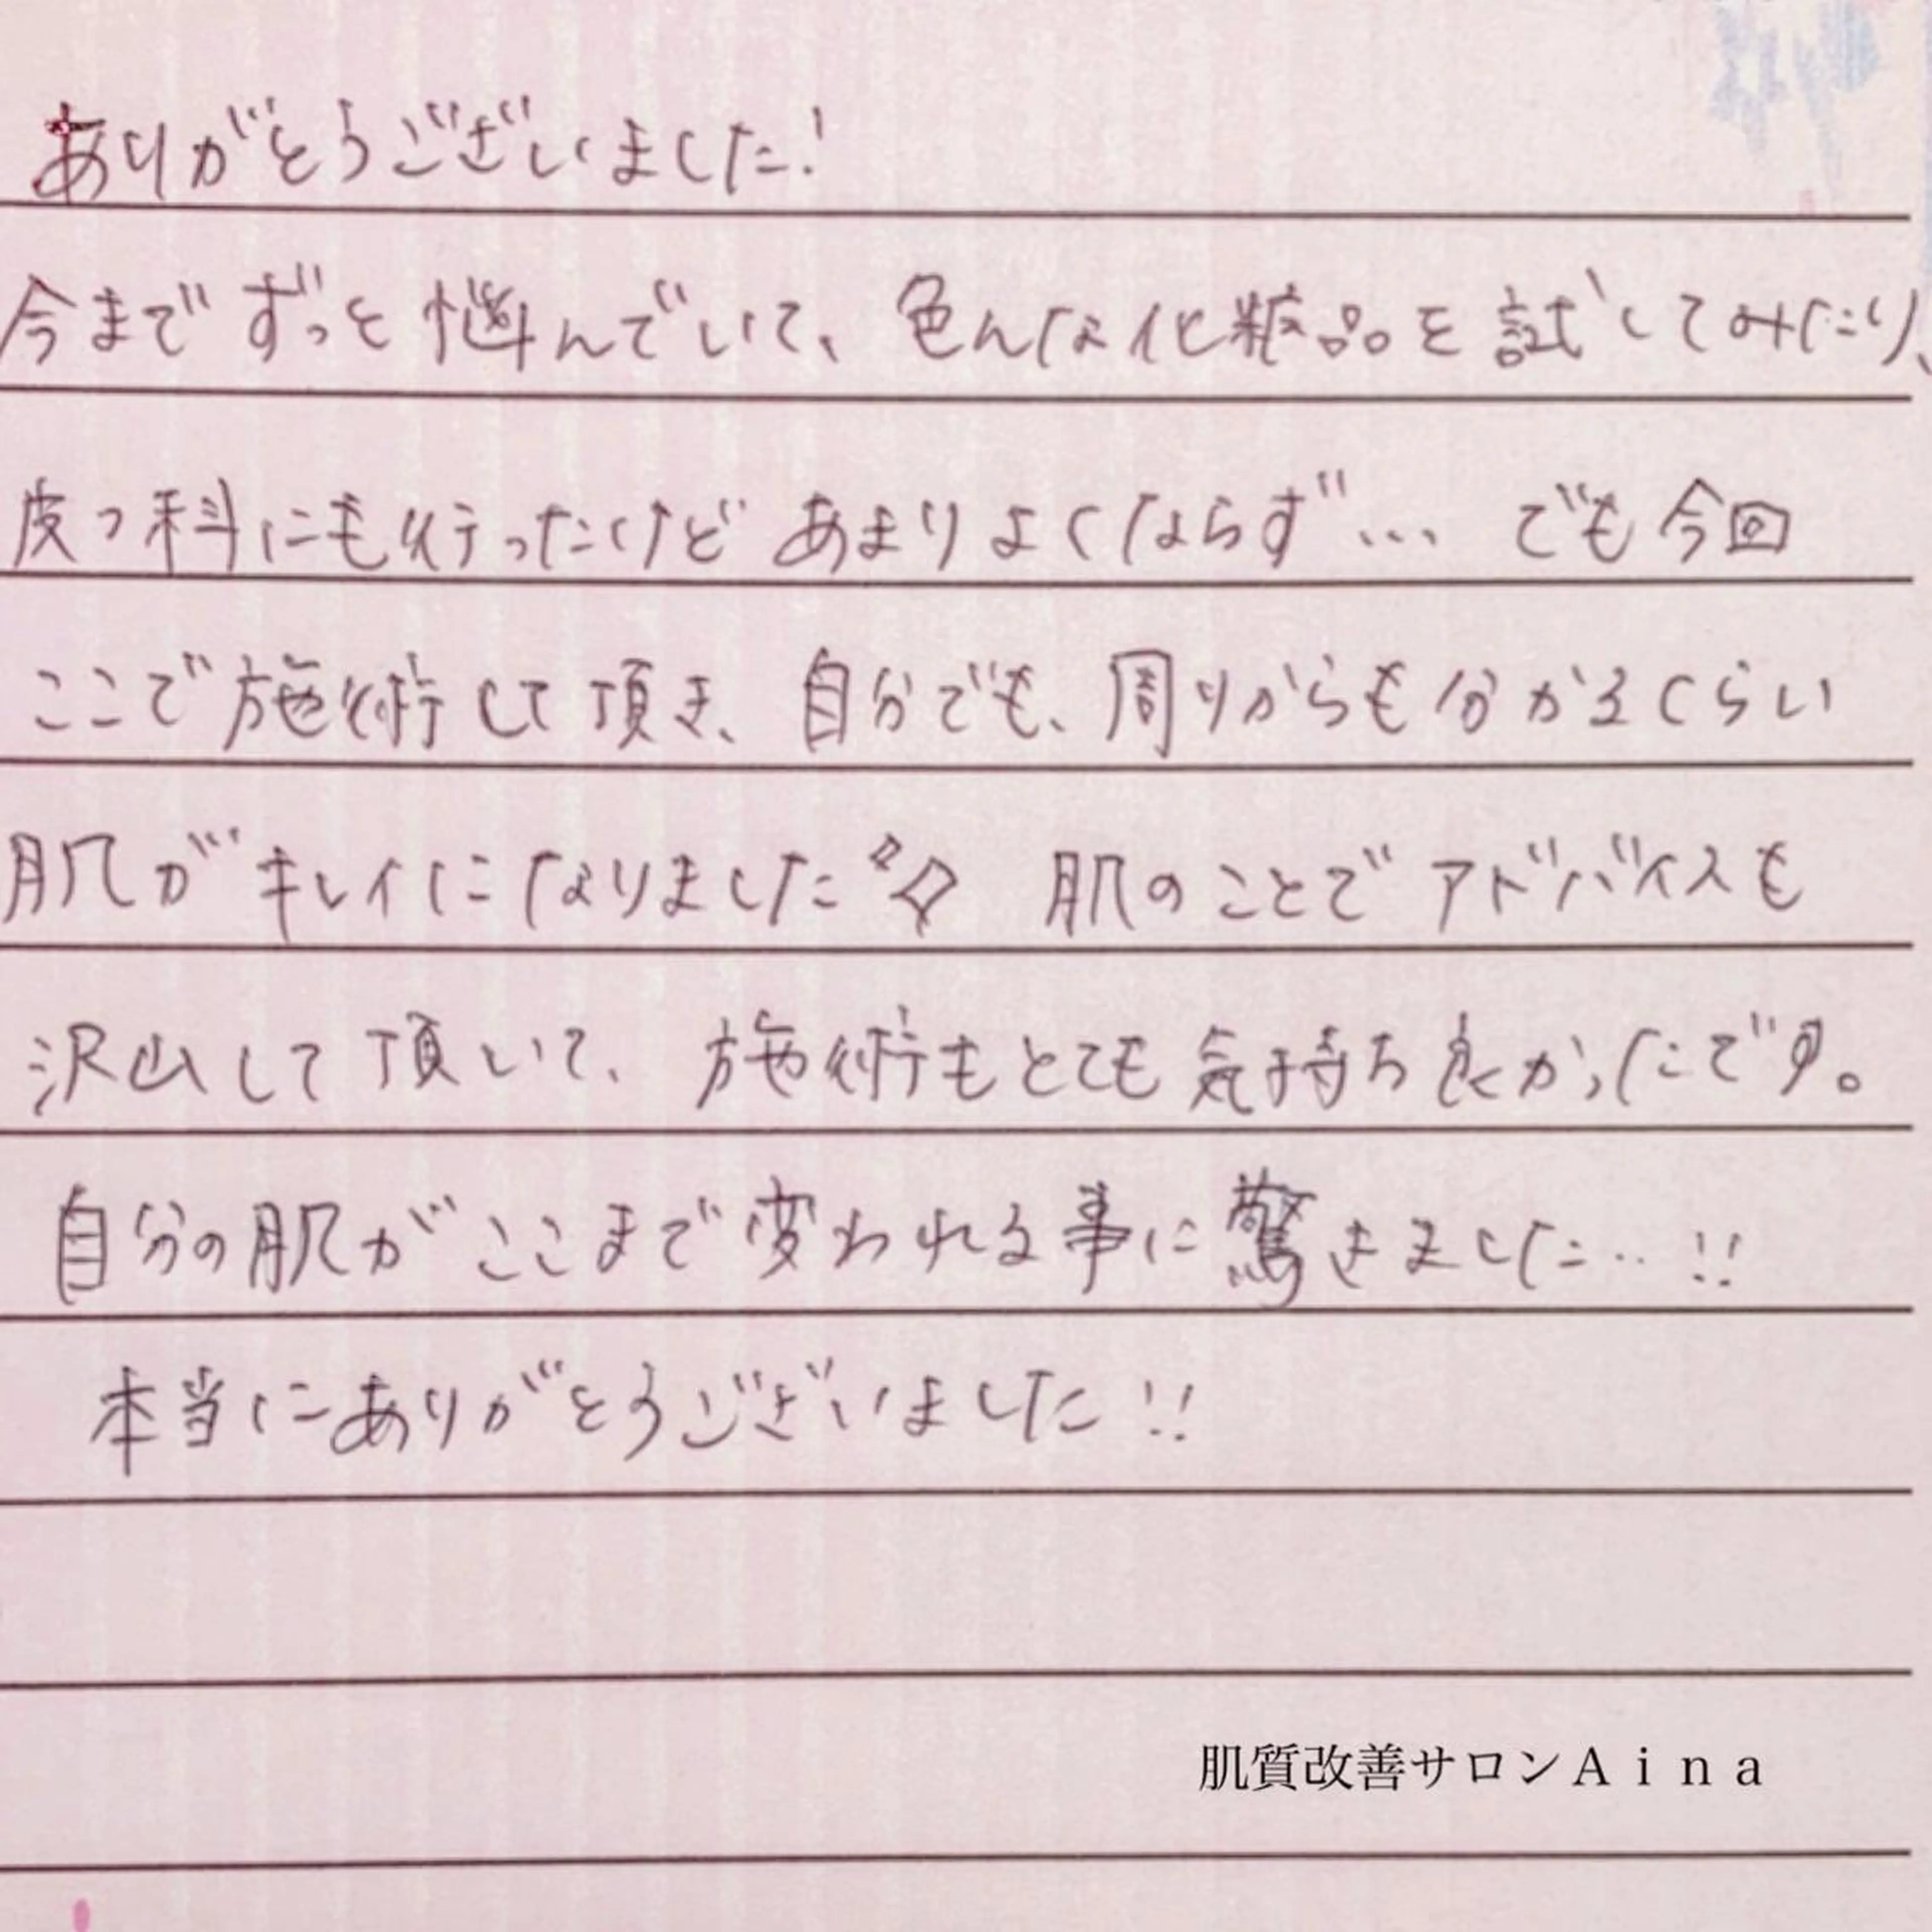 ありがとうございました!
今までずっと悩んでいて、色んな化粧品を試してみたり、
皮フ科にも行ったけどあまりよくならず… でも今回
ここで施術して頂き、自分でも、周りからも分かるくらい
肌がキレイになりました 肌のことでアドバイスも
沢山して頂いて、施術もとても気持ち良かったです。
自分の肌がここまで変われる事に驚きました…!!
本当にありがとうございました!!
肌質改善サロンAina